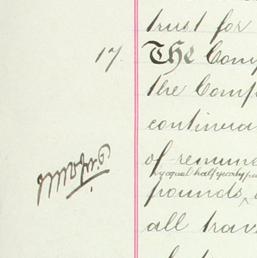 trust for
17. The Com
the Comp
continua
of remun
by equal half yearly pa
pounds,
all trav